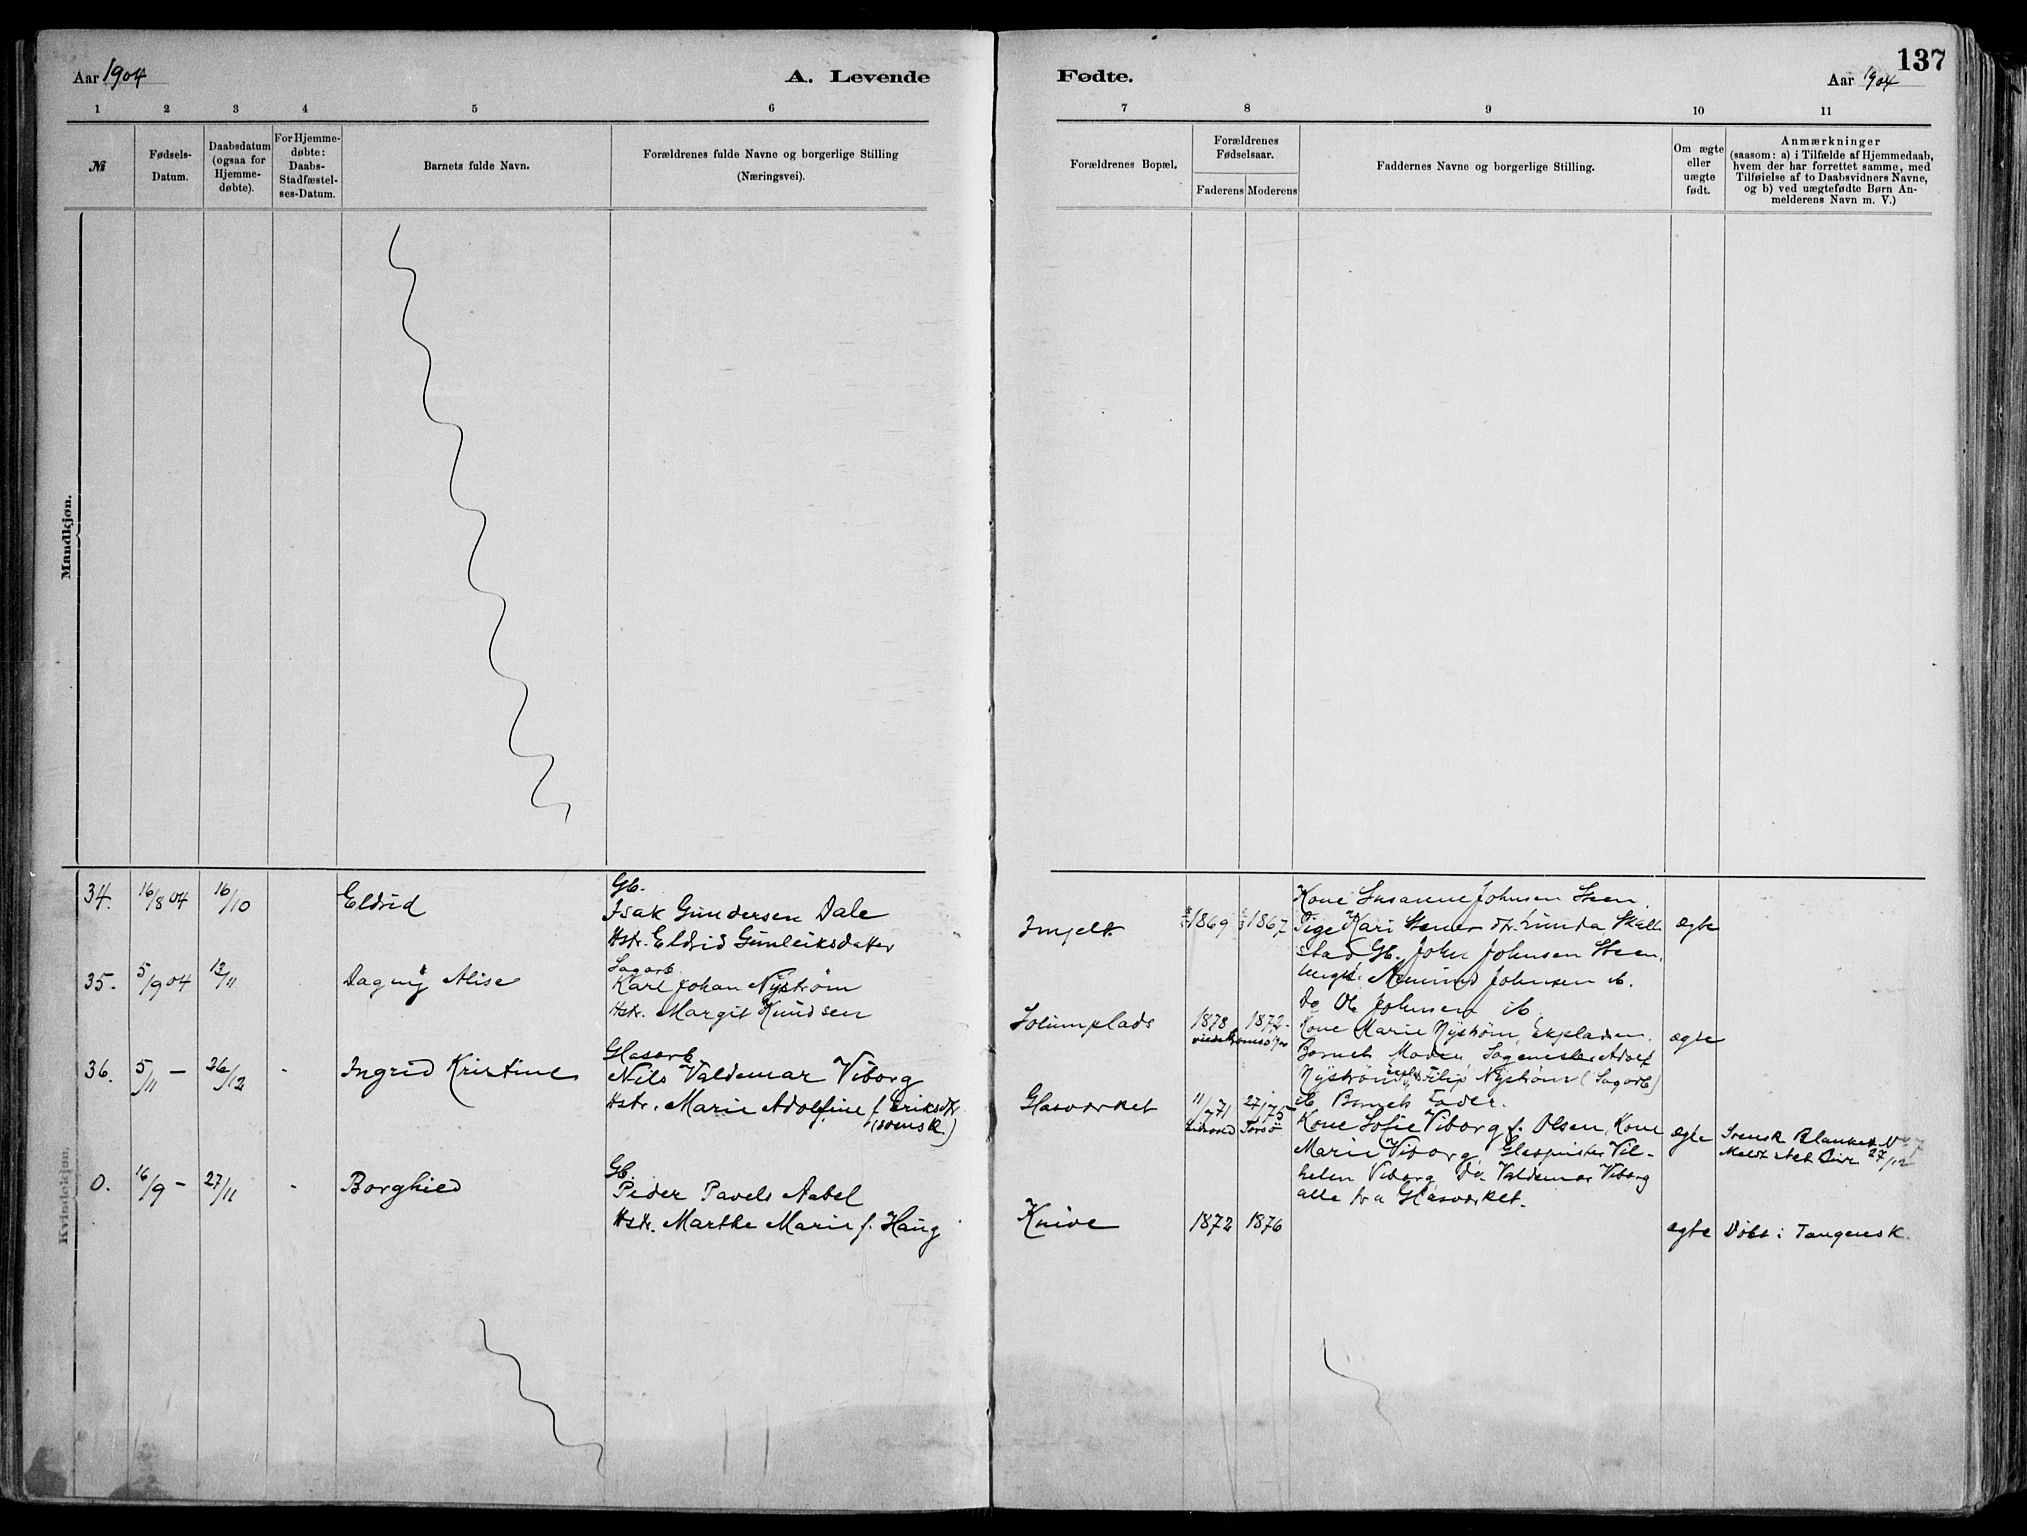 137
Aar 1904
A. Levende
Fødte.
Aar 1904
1 2 3 4 5 6
7 8 9 10 11
№
Fødsels-
Datum.
Daabsdatum
(ogsaa for
Hjemme-
døbte).
For Hjemme-
døbte:
Daabs-
Stadfæstel-
ses-Datum.
Barnets fulde Navn.
Forældrenes fulde Navne og borgerlige Stilling
(Næringsvei).
Forældrenes Bopæl.
Forældrenes
Fødselsaar.
Faderens Moderens
Faddernes Navne og borgerlige Stilling.
Om ægte
eller
uægte
født.
Anmærkninger
(saasom: a) i Tilfælde af Hjemmedaab,
hvem der har forrettet samme, med
Tilføielse af to Daabsvidners Navne,
og b) ved uægtefødte Børn An-
melderens Navn m. V.)
Mandkjøn.
Kvindekjøn.
34. 16/8 04 16/10 Eldrid
Gb.
Isak Gundersen Dale
Hstr. Eldrid Gunleiksdatter
1869 1867
Kone Susanne Johnsen Steen.
Pige Kari Stener
stad Gb. John Johnsen Steen.
Johnsen ib.
Do Ole Johnsen ib.
ægte
35. 5/9 04 13/11 Dagny Alise
Sagarb.
Karl Johan Nÿstrøm
Hstr. Margit Knudsen
Solumplads
1878 1872
Kone Marie Nÿstrøm, Ekpladsen.
Barnets Moder, Sagmester Adolf
Nÿstrøm, Filip Nÿstrøm (Sagarb)
ib Barnets Fader.
ægte
36. 5/11 - 26/12 - Ingrid Kristine
Glasarb
Nils Valdemar Viborg
Hstr. Marie Adolfine f. Eriksdtr
(svensk.)
Glasværket
11/7 71 27/1 75
Torsø
Kone Sofie Viborg f. Olsen, Kone
Marie Viborg, Glaspuster Vil-
helm Viborg, Do Valdemar Viborg
alle fra Glasværket.
ægte
Svensk Blanket
27/12
0. 16/9 - 27/11 - Borghild
Gb.
Peder Pavels Aabel
Hstr. Marthe Marie f. Haug
Knive
1872 1876
ægte
Døbt i Tangen sk.